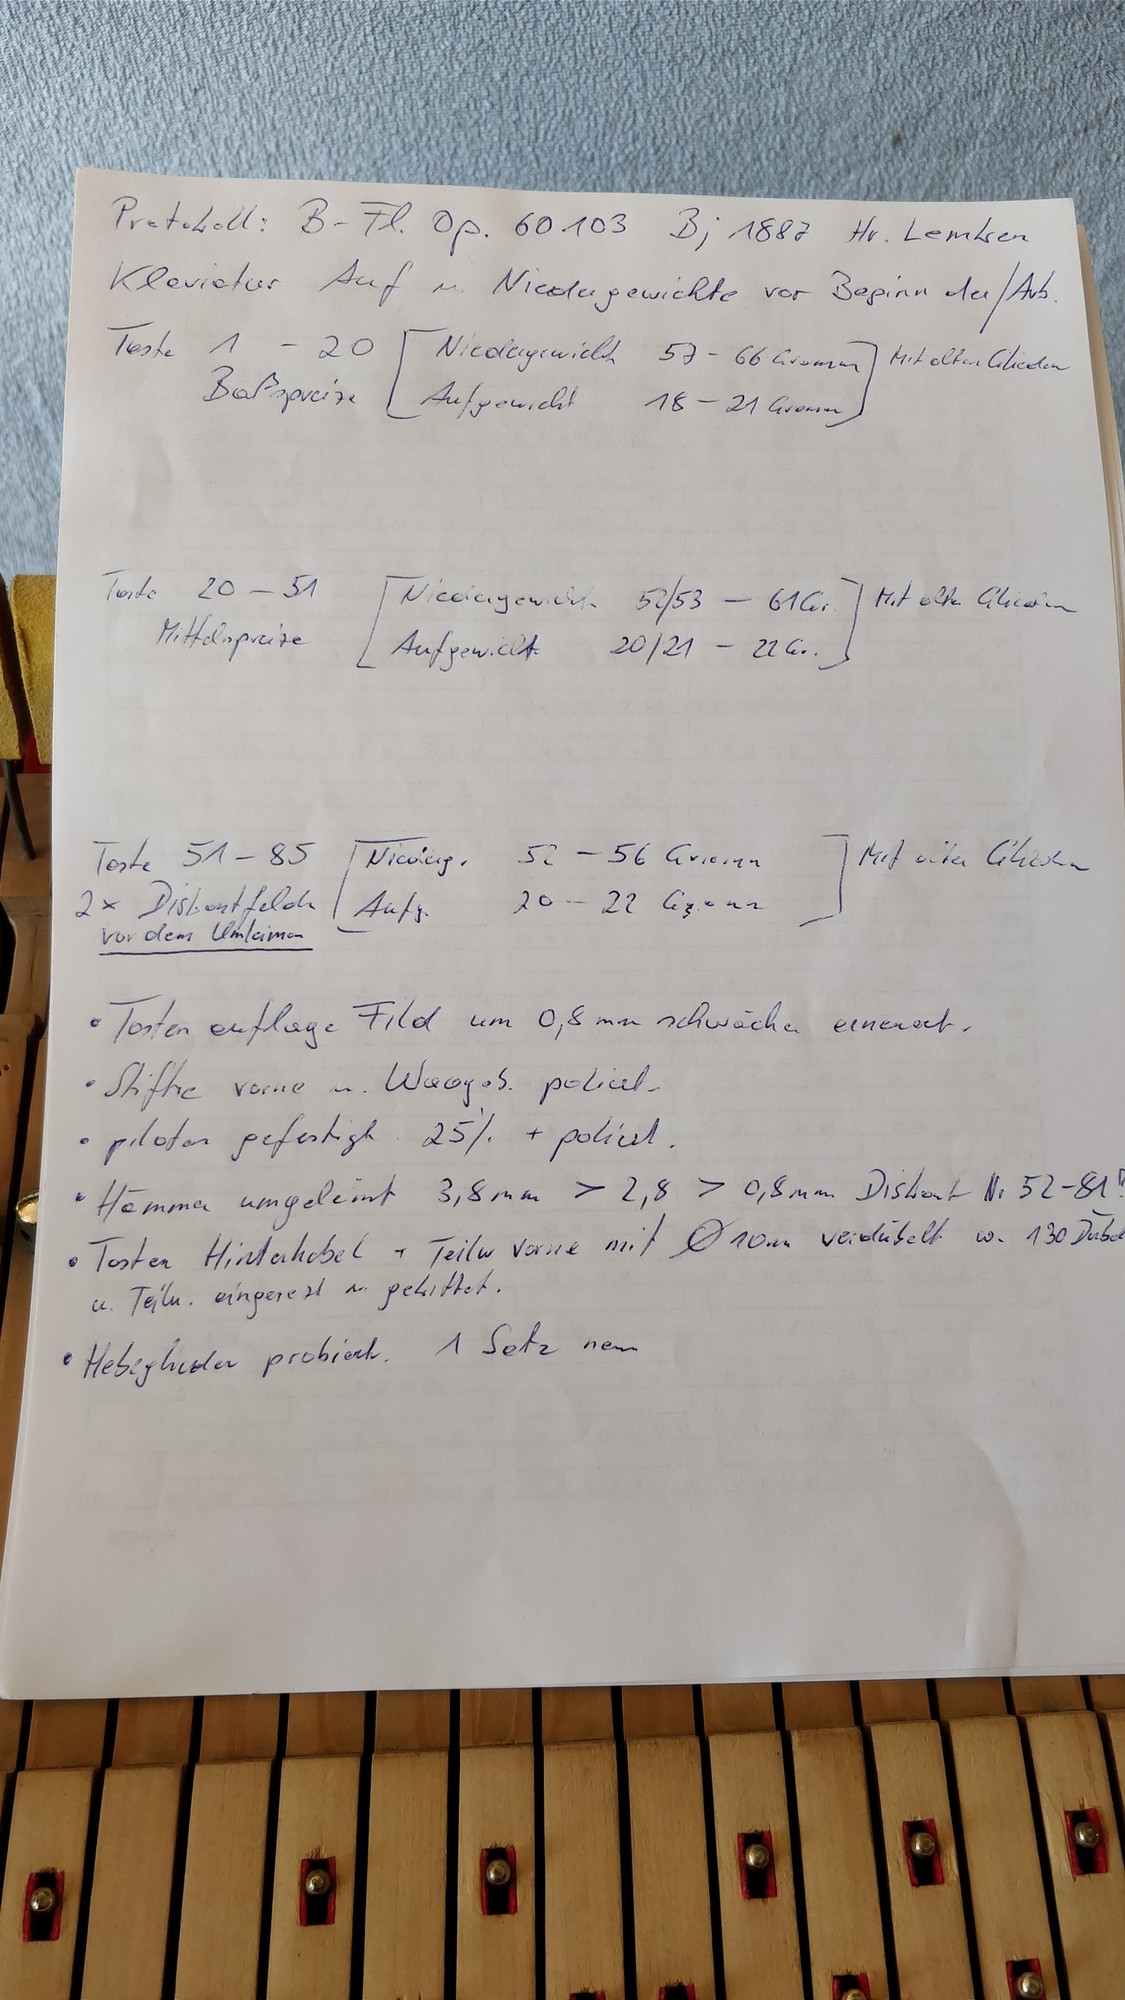 Protokoll: B-Fl. Op. 60.103 Bj 1887 Hr. Lemken
Klaviatur Auf u. Niedergewichte vor Beginn der Arb.
Taste 1 - 20 [Niedergewicht 57 - 66 Gramm] Mit alten Gliedern
Baßspreize [Aufgewicht 18 - 21 Gramm]
Taste 20 - 51 [Niedergewicht 52/53 - 61 Gr.] Mit alten Gliedern
Mittelspreize [Aufgewicht 20/21 - 22 Gr.]
Taste 51 - 85 [Niederg. 52 - 56 Gramm] Mit alten Gliedern
2x Diskantfelder [Aufg. 20 - 22 Gramm]
vor dem Umleimen
• Tasten auflage Filz um 0,8 mm schwächer erneuert.
• Stifte vorne u. Waageb. poliert.
• piloten gefestigt 25% + poliert.
• Hämmer umgeleimt 3,8mm > 2,8 > 0,8mm Diskant Nr 52-81!
• Tasten Hinterhebel + Teilw vorne mit Ø 10mm verdübelt w. 130 Dübel
u. Teilw. u. gekittet.
• Hebeglieder probiert. 1 Satz neu